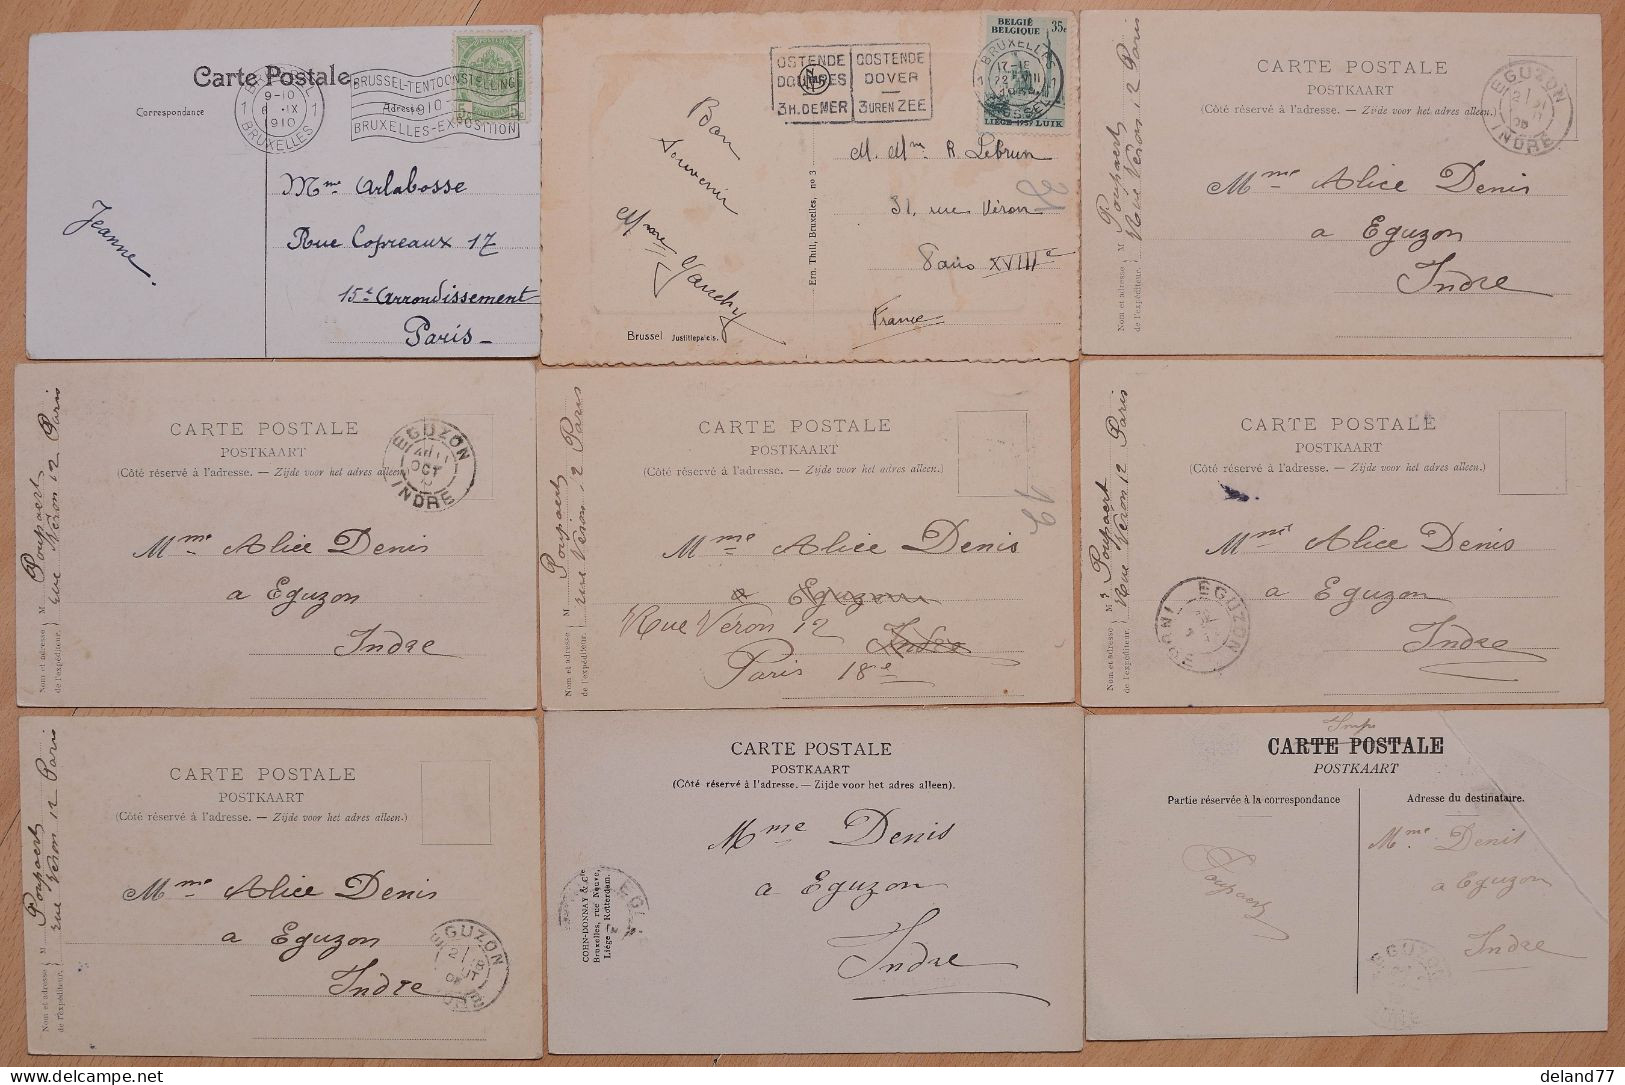 Carte Postale
Correspondance
Adresse
BRUXELLES
9-10
6 IX
1910
BRUXELLES
BRUSSEL-TENTOONSTELLING
1910
BRUXELLES-EXPOSITION
5c 5c
Mme Arlabosse
Rue Copreaux 17
15t Arrondissement
Paris
Jeanne
BELGIË
BELGIQUE
35c
LIÈGE 1939 LUIK
OSTENDE
DOUVRES
3H. DE MER
OOSTENDE
DOVER
3 UREN ZEE
Bon
Souvenir
Mme
M. Mme R Lebrun
31, rue Véron
Paris XVIIIe
France
Ern. Thill, Bruxelles, no 3
Brussel Justitiepaleis.
CARTE POSTALE
POSTKAART
(Côté réservé à l'adresse. — Zijde voor het adres alleen.)
EGUZON
INDRE
Mme Alice Denis
a Eguzon
Indre
Nom et adresse M Poupaert
de l'expéditeur. Rue Véron 12 Paris
CARTE POSTALE
POSTKAART
(Côté réservé à l'adresse. — Zijde voor het adres alleen.)
EGUZON
OCT
INDRE
Mme Alice Denis
a Eguzon
Indre
Nom et adresse M Poupaert
de l'expéditeur. rue Véron 12 Paris
CARTE POSTALE
POSTKAART
(Côté réservé à l'adresse. — Zijde voor het adres alleen.)
Mme Alice Denis
a Eguzon
Rue Véron 12 Indre
Paris 18e
Nom et adresse M Poupaert
de l'expéditeur. rue Véron 12 Paris
CARTE POSTALE
POSTKAART
(Côté réservé à l'adresse. — Zijde voor het adres alleen.)
Mme Alice Denis
a Eguzon
Indre
EGUZON
INDRE
Nom et adresse M Poupaert
de l'expéditeur. Rue Véron 12 Paris
CARTE POSTALE
POSTKAART
(Côté réservé à l'adresse. — Zijde voor het adres alleen.)
Mme Alice Denis
a Eguzon
Indre
EGUZON
INDRE
Nom et adresse M Poupaert
de l'expéditeur. rue Véron 12 Paris
CARTE POSTALE
POSTKAART
(Côté réservé à l'adresse. — Zijde voor het adres alleen).
Mme Denis
a Eguzon
Indre
COHN-DONNAY & Cie
Bruxelles, rue Neuve,
Liège — Rotterdam.
CARTE POSTALE
POSTKAART
Partie réservée à la correspondance
Adresse du destinataire.
Mme Denis
a Eguzon
Indre
Poupaert
EGUZON
deland77